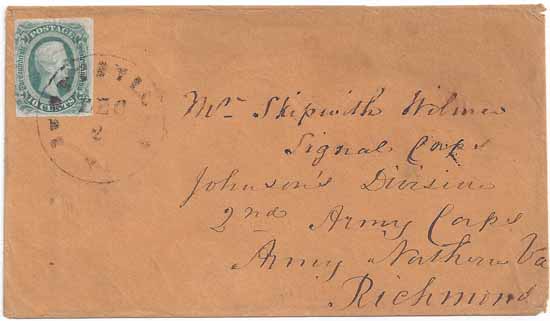 POSTAGE
CENTS
DEC
2
Mr Skipwith Wilmer
Signal Corps
Johnson's Division
2nd Army Corps
Army Northern Va
Richmond